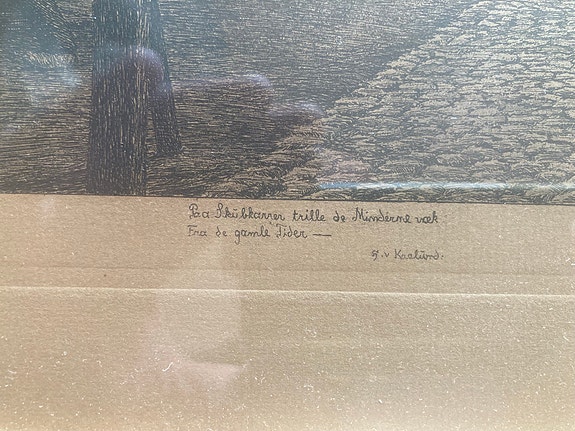 Paa Skubkarrer trille de Minderne væk
Fra de gamle Tider —
H. v Kaalund.